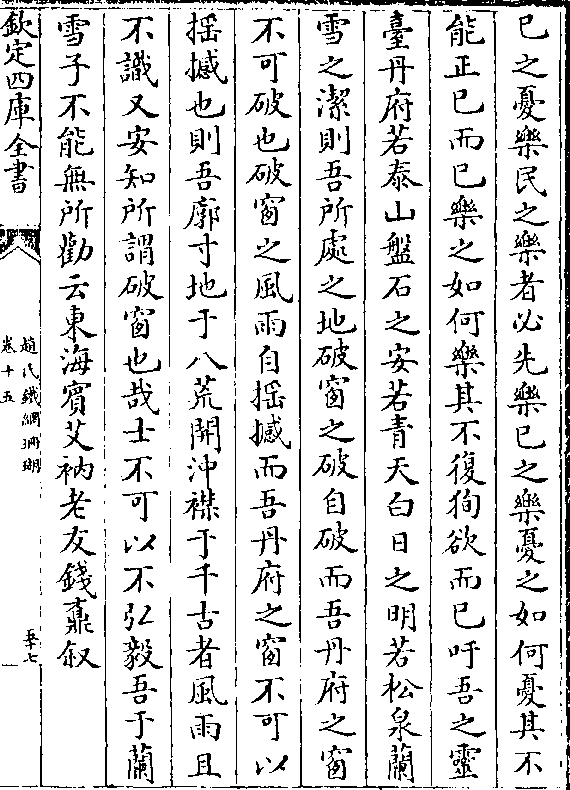 已之憂樂民之樂者必先樂已之樂憂之如何憂其不
能正已而已樂之如何樂其不復狥欲而已吁吾之靈
臺丹府若泰山盤石之安若青天白日之明若松泉蘭
雪之潔則吾所處之地破窗之破自破而吾丹府之窗
不可破也破窗之風雨自揺撼而吾丹府之窗不可以
揺撼也則吾廓寸地于八荒開沖襟于千古者風雨且
不識又安知所謂破窗也哉士不可以不弘毅吾于蘭
雪子不能無所勸云東海賓艾衲老友錢鼒叙
欽定四庫全書
趙氏鐵網珊瑚
卷十五
五十七